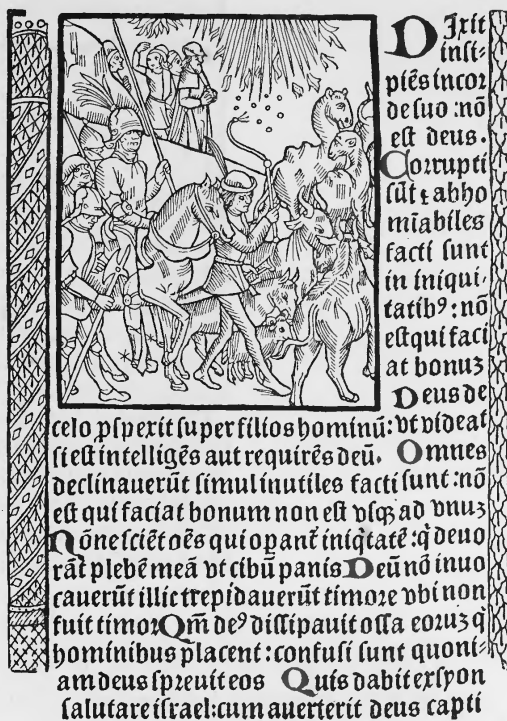 DIxit
insi-
piẽs incor
de suo :nõ
est deus.
Corrupti
sũt ⁊ abho
mĩabiles
facti sunt
in iniqui-
tatibꝰ: nõ
est qui faci
at bonuʒ
Deus de
celo ꝓspexit super filios hominũ: vt videat
si est intelligẽs aut requirẽs deũ. Omnes
declinauerũt simul inutiles facti sunt :nõ
est qui faciat bonum non est vsqʒ ad vnuʒ
Nõne sciẽt oẽs qui oꝑant̃ iniq̃tatẽ :q̃ deuo
rãt plebẽ meã vt cibũ panis Deũ nõ inuo
cauerũt illic trepidauerũt timore vbi non
fuit timor Qm̃ deꝰ dissipauit ossa eoruʒ q̃
hominibus placent : confusi sunt quoni-
am deus spreuit eos Quis dabit ex syon
salutare israel: cum auerterit deus capti